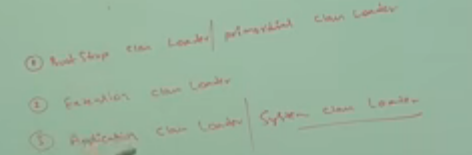 ① BootStrap class Loader / primordial class Loader
② Extention class Loader
③ Application class Loader / System class Loader